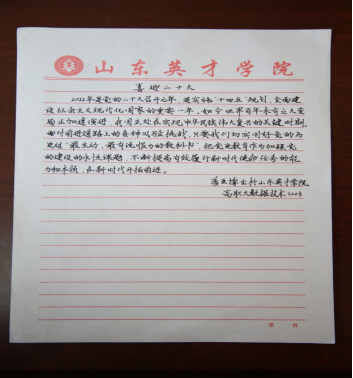 山东英才学院
喜迎二十大
2022年是党的二十大召开之年，是实施“十四五”规划，全面建
设社会主义现代化国家的重要一年，如今世界百年未有之大变
局正加速演进，我国正处在实现中华民族伟大复兴的关键时期，
面对前进道路上的各种风险挑战，只要我们切实用好党的历
史这“最生动，最有说服力的教科书”，把党史教育作为加强党
的建设的永恒课题，不断提高有效履行新时代使命任务的能
力和本领，在新时代开拓前进。
于山东英才学院
高职大数据技术2203
第 页